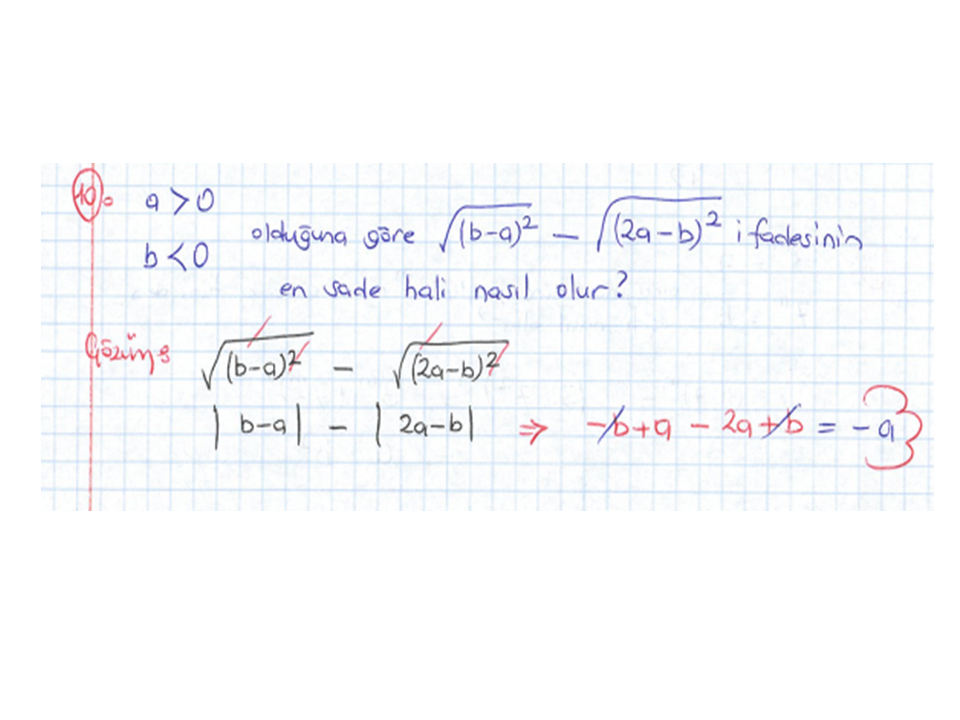 10. a > 0
b < 0
olduğuna göre √(b-a)² - √(2a-b)² ifadesinin
en sade hali nasıl olur?
Çözüm:
√(b-a)² - √(2a-b)²
|b-a| - |2a-b| ⇒ -b+a - 2a+b = -a